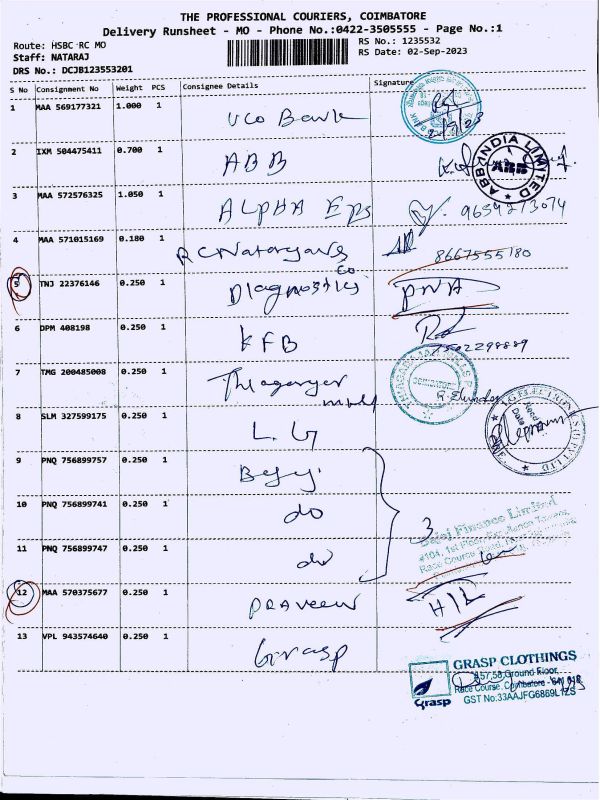 THE PROFESSIONAL COURIERS, COIMBATORE
Delivery Runsheet - MO - Phone No.:0422-3505555 - Page No.:1
Route: HSBC RC MO
RS No.: 1235532
Staff: NATARAJ
RS Date: 02-Sep-2023
DRS No.: DCJB123553201
S No Consignment No Weight PCS Consignee Details Signature
1 MAA 569177321 1.000 1 UCO Bank
2 IXM 504475411 0.700 1 ABB
ABB INDIA LIMITED
ABB
3 MAA 572576325 1.050 1 ALPHA EPS 9659273074
4 MAA 571015169 0.180 1 8667555180
5 TNJ 22376146 0.250 1 Diagnostics DNA
6 DPM 408198 0.250 1 KFB
7 TMG 200485008 0.250 1
8 SLM 327599175 0.250 1 L.G
9 PNQ 756899757 0.250 1
10 PNQ 756899741 0.250 1 do
11 PNQ 756899747 0.250 1 do
3
Bajaj Finance Limited
#104, 1st Floor,
Race Course Road,
12 MAA 570375677 0.250 1 PRAVEEN
13 VPL 943574640 0.250 1 Grasp
GRASP CLOTHINGS
Ground Floor,
Race Course, Coimbatore - 641 018
GST No.33AAJFG6869L1ZS
Grasp